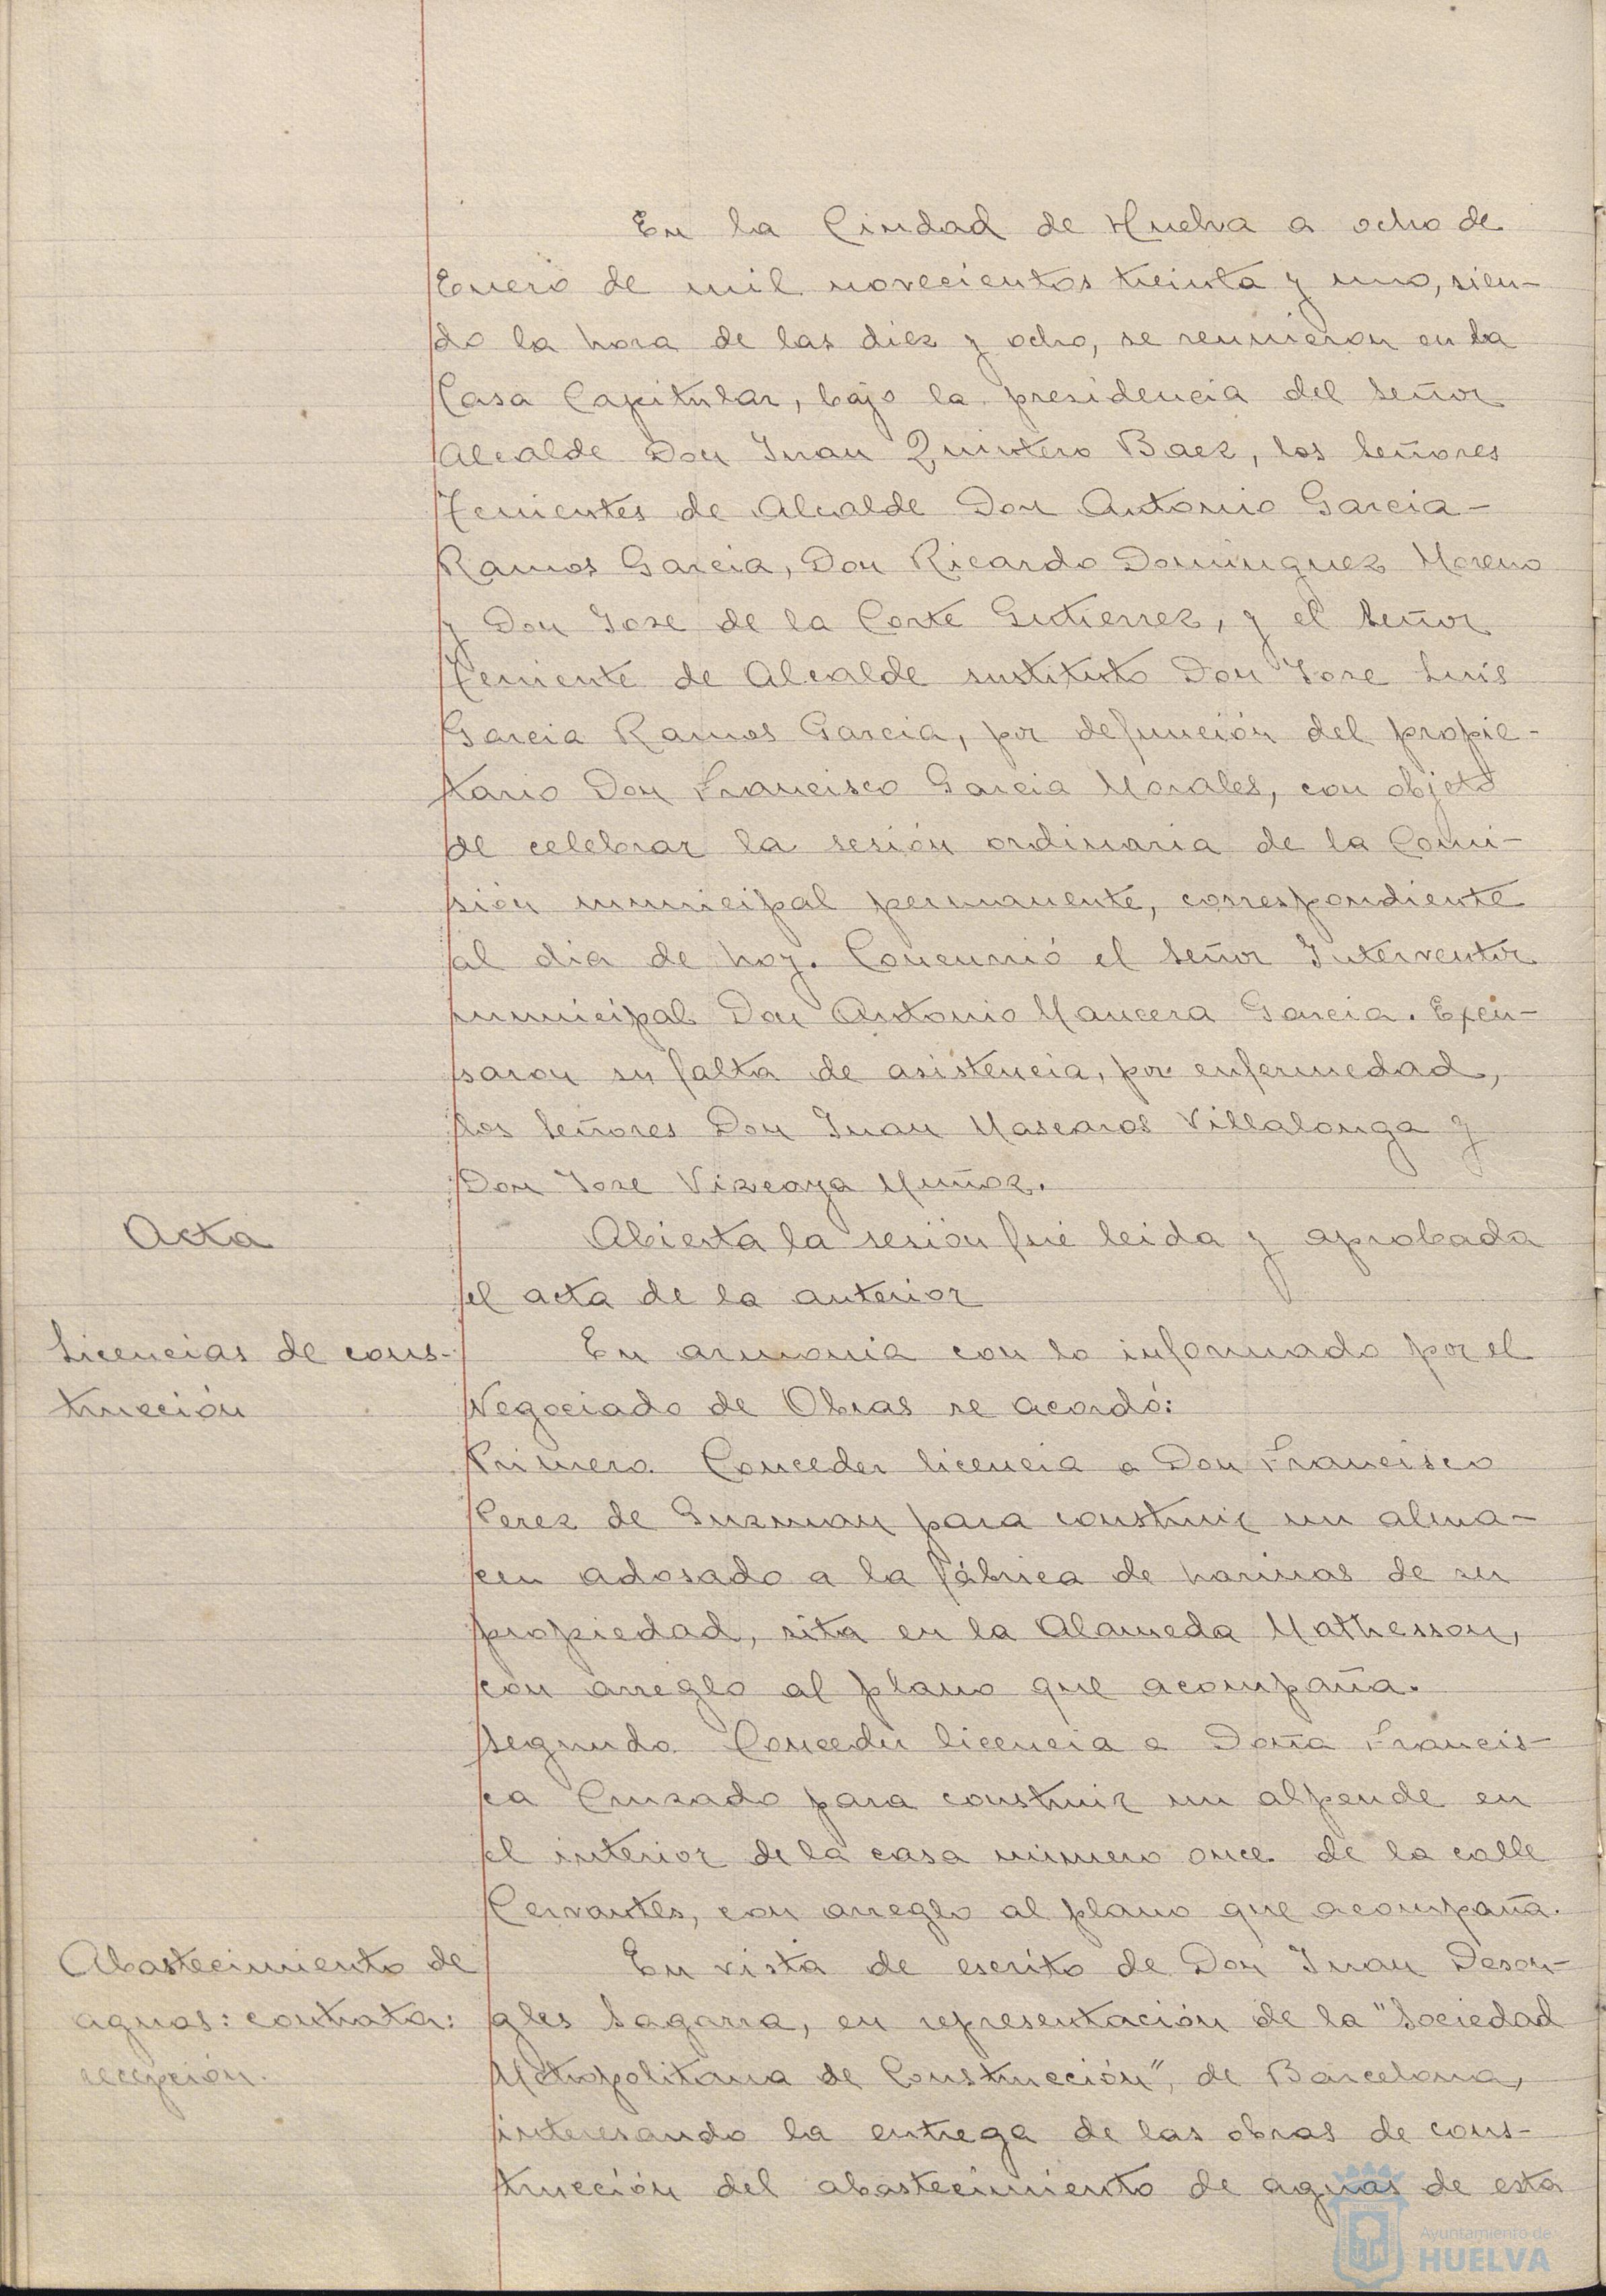 En la Ciudad de Huelva a ocho de
Enero de mil novecientos treinta y uno, sien-
do la hora de las diez y ocho, se reunieron en la
Casa Capitular, bajo la presidencia del Señor
Alcalde Don Juan Quintero Baez, los Señores
Tenientes de Alcalde Don Antonio Garcia-
Ramos Garcia, Don Ricardo Dominguez Moreno
y Don Jose de la Corte Gutierrez, y el Señor
Teniente de Alcalde sustituto Don Jose Luis
Garcia Ramos Garcia, por defunción del propie-
tario Don Francisco Garcia Morales, con objeto
de celebrar la sesión ordinaria de la Comi-
sión municipal permanente, correspondiente
al dia de hoy. Concurrió el Señor Interventor
municipal Don Antonio Mancera Garcia. Excu-
saron su falta de asistencia, por enfermedad,
los Señores Don Juan Mascaros Villalonga y
Don Jose Vizcaya Muñoz.
Acta
Abierta la sesión fué leida y aprobada
el acta de la anterior
Licencias de cons-
trucción
En armonia con lo informado por el
Negociado de Obras se acordó:
Primero. Conceder licencia a Don Francisco
Perez de Guzman para construir un alma-
cen adosado a la fábrica de harinas de su
propiedad, sita en la Alameda Mathesson,
con arreglo al plano que acompaña.
Segundo. Conceder licencia a Doña Francis-
ca Cruzado para construir un alpende en
el interior de la casa número once de la calle
Cervantes, con arreglo al plano que acompaña.
Abastecimiento de
aguas: contrata:
recepción.
En vista de escrito de Don Juan Deson-
gles Sagarra, en representación de la "Sociedad
Metropolitana de Construcción", de Barcelona,
interesando la entrega de las obras de cons-
trucción del abastecimiento de aguas de esta
Ayuntamiento de
HUELVA